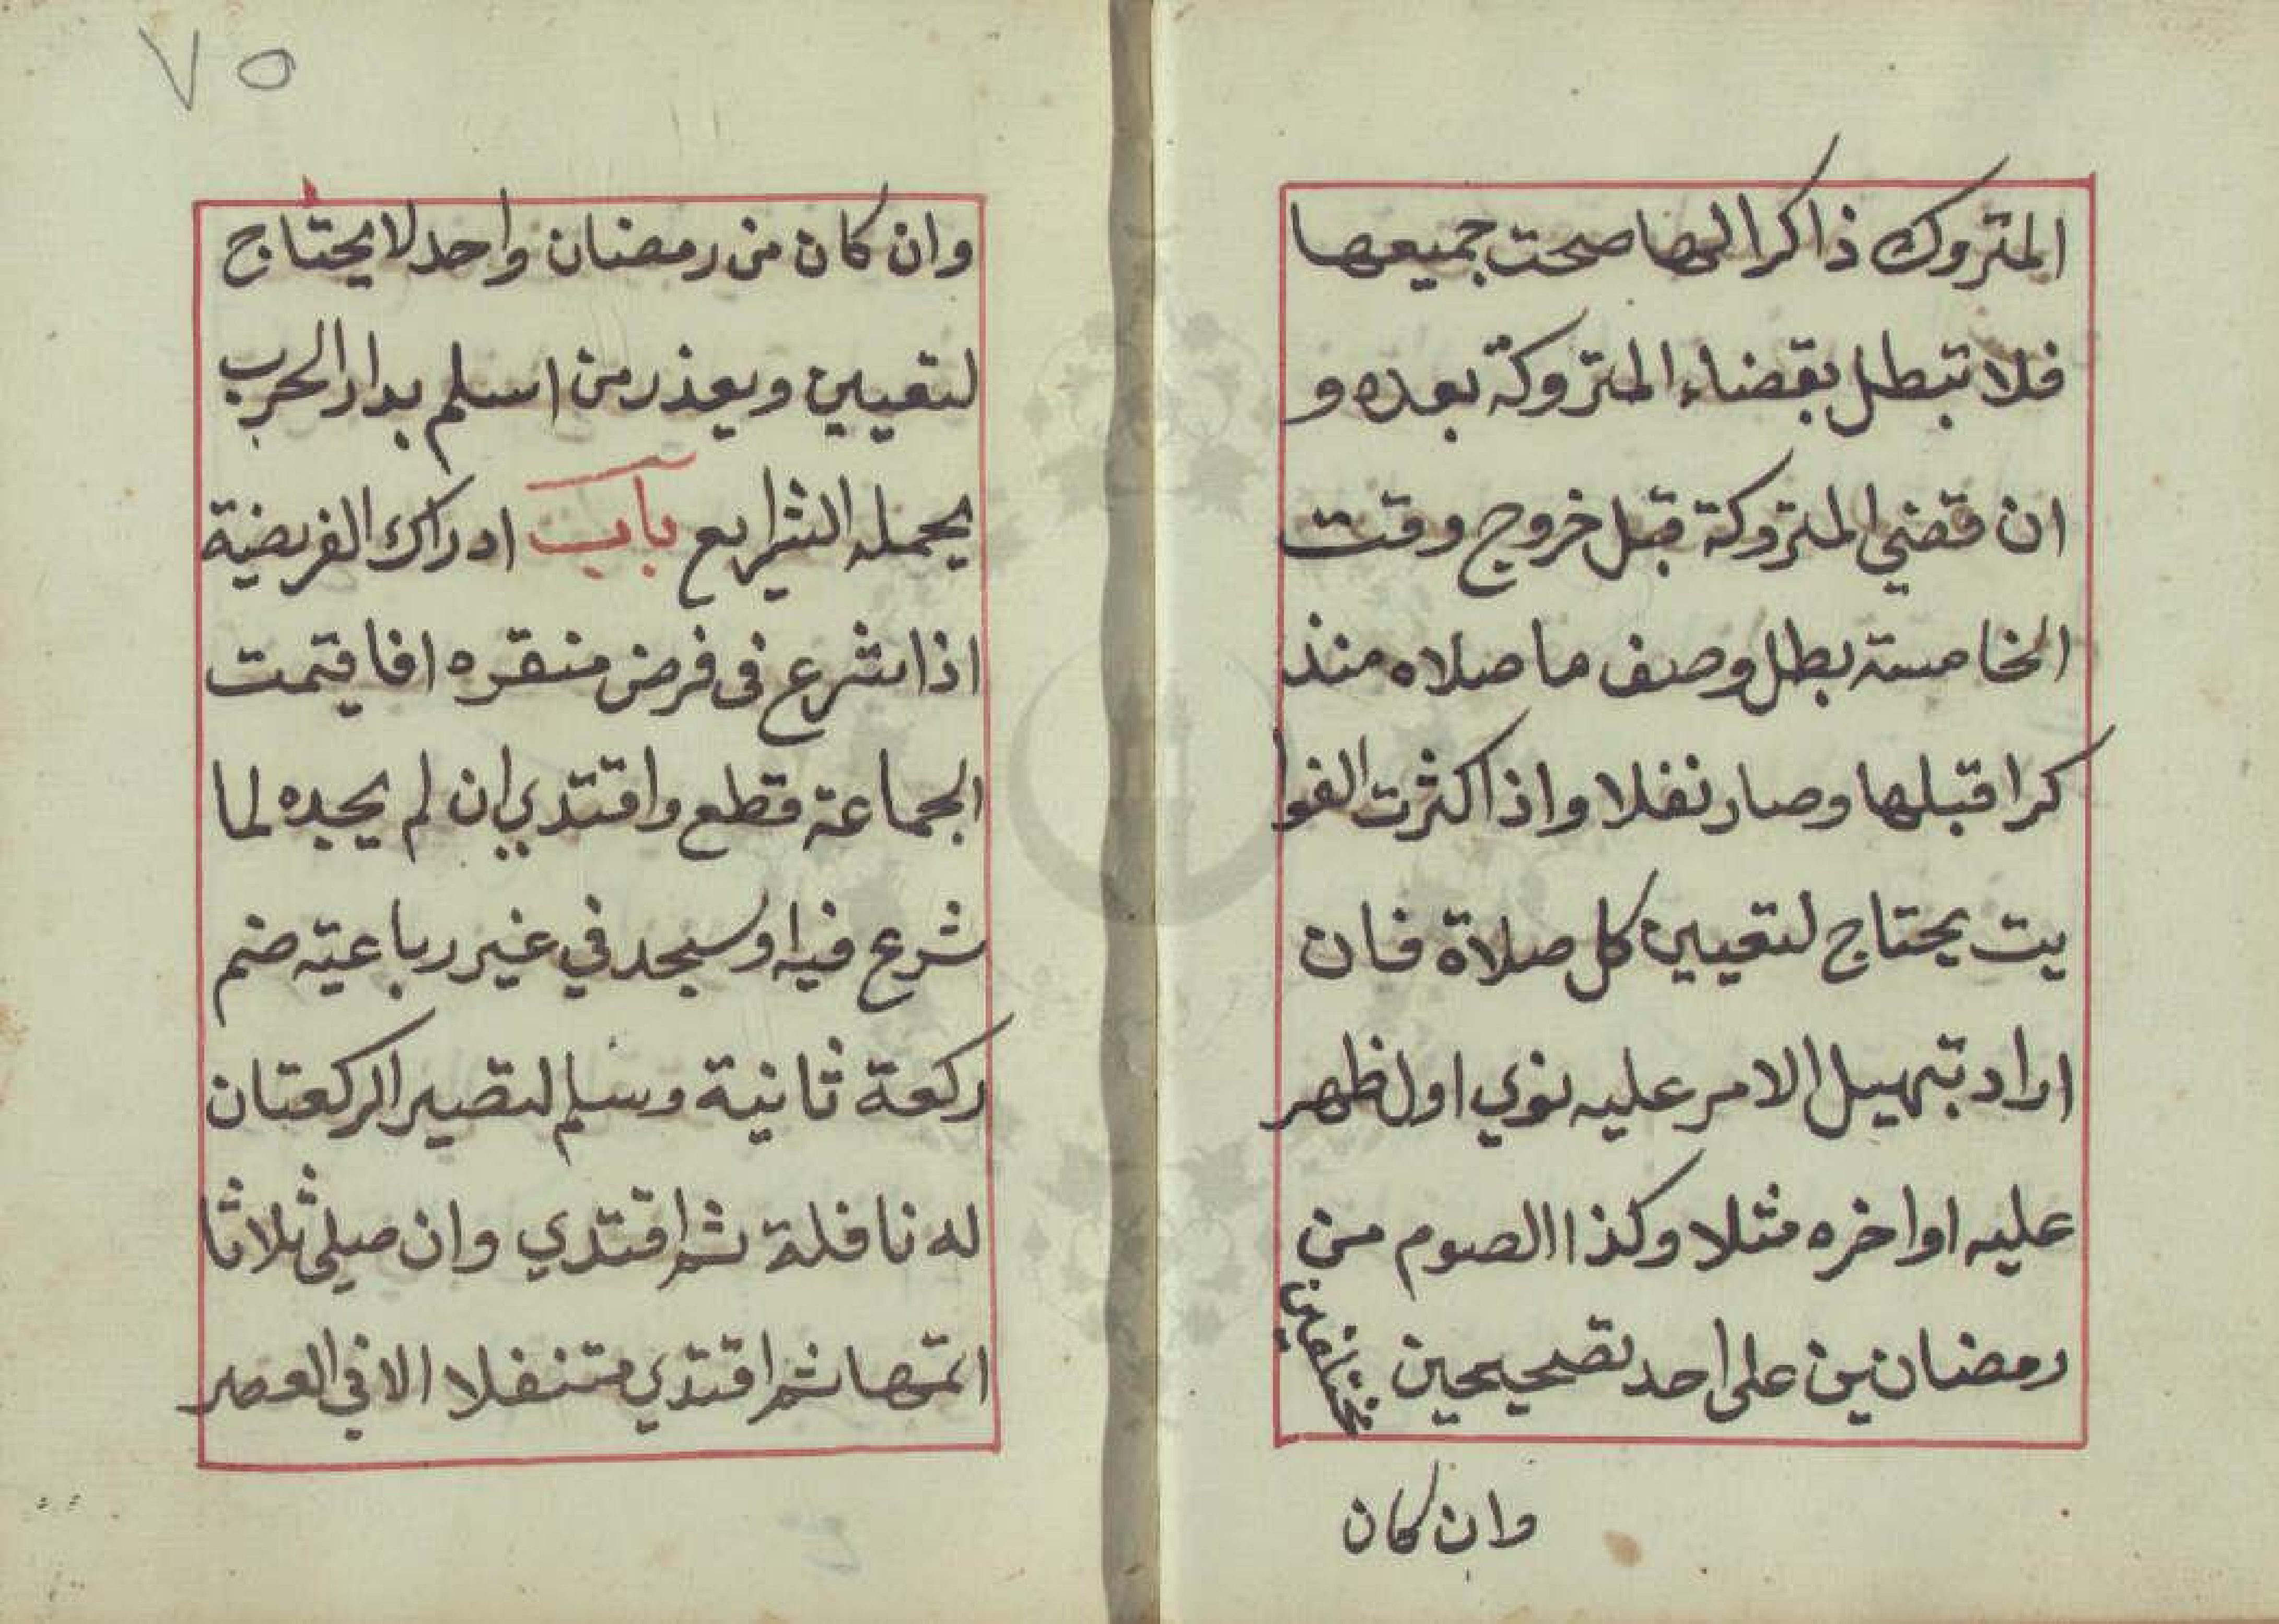 المتروك ذاكرا لها صحت جميعها
فلا تبطل بقضاء المتروكة بعده و
ان قضي المتروكة قبل خروج وقت
الخامسة بطل وصف ما صلاه منذ
كرا قبلها وصار نفلا واذا كثرت الفوا
يت يحتاج لتعيين كل صلاة فان
اراد تسهيل الامر عليه نوي اول ظهر
عليه او اخره مثلا وكذا الصوم من
رمضانين على احد تصحيحين مختلفين
وان كان
٧٥
وان كان من رمضان واحد لا يحتاج
لتعيين ويعذر من اسلم بدار الحرب
بجمله الشرايع باب ادراك الفريضة
اذا شرع في فرض منفرده افا قيمت
الجماعة قطع واقتدي ان لم يجده لما
شرع فيه او سجد في غير رباعية ضم
ركعة ثانية وسلم لتصير الركعتان
له نافلة ثم اقتدي وان صلى ثلاثا
اتمها ثم اقتدي متنفلا الا في العصر